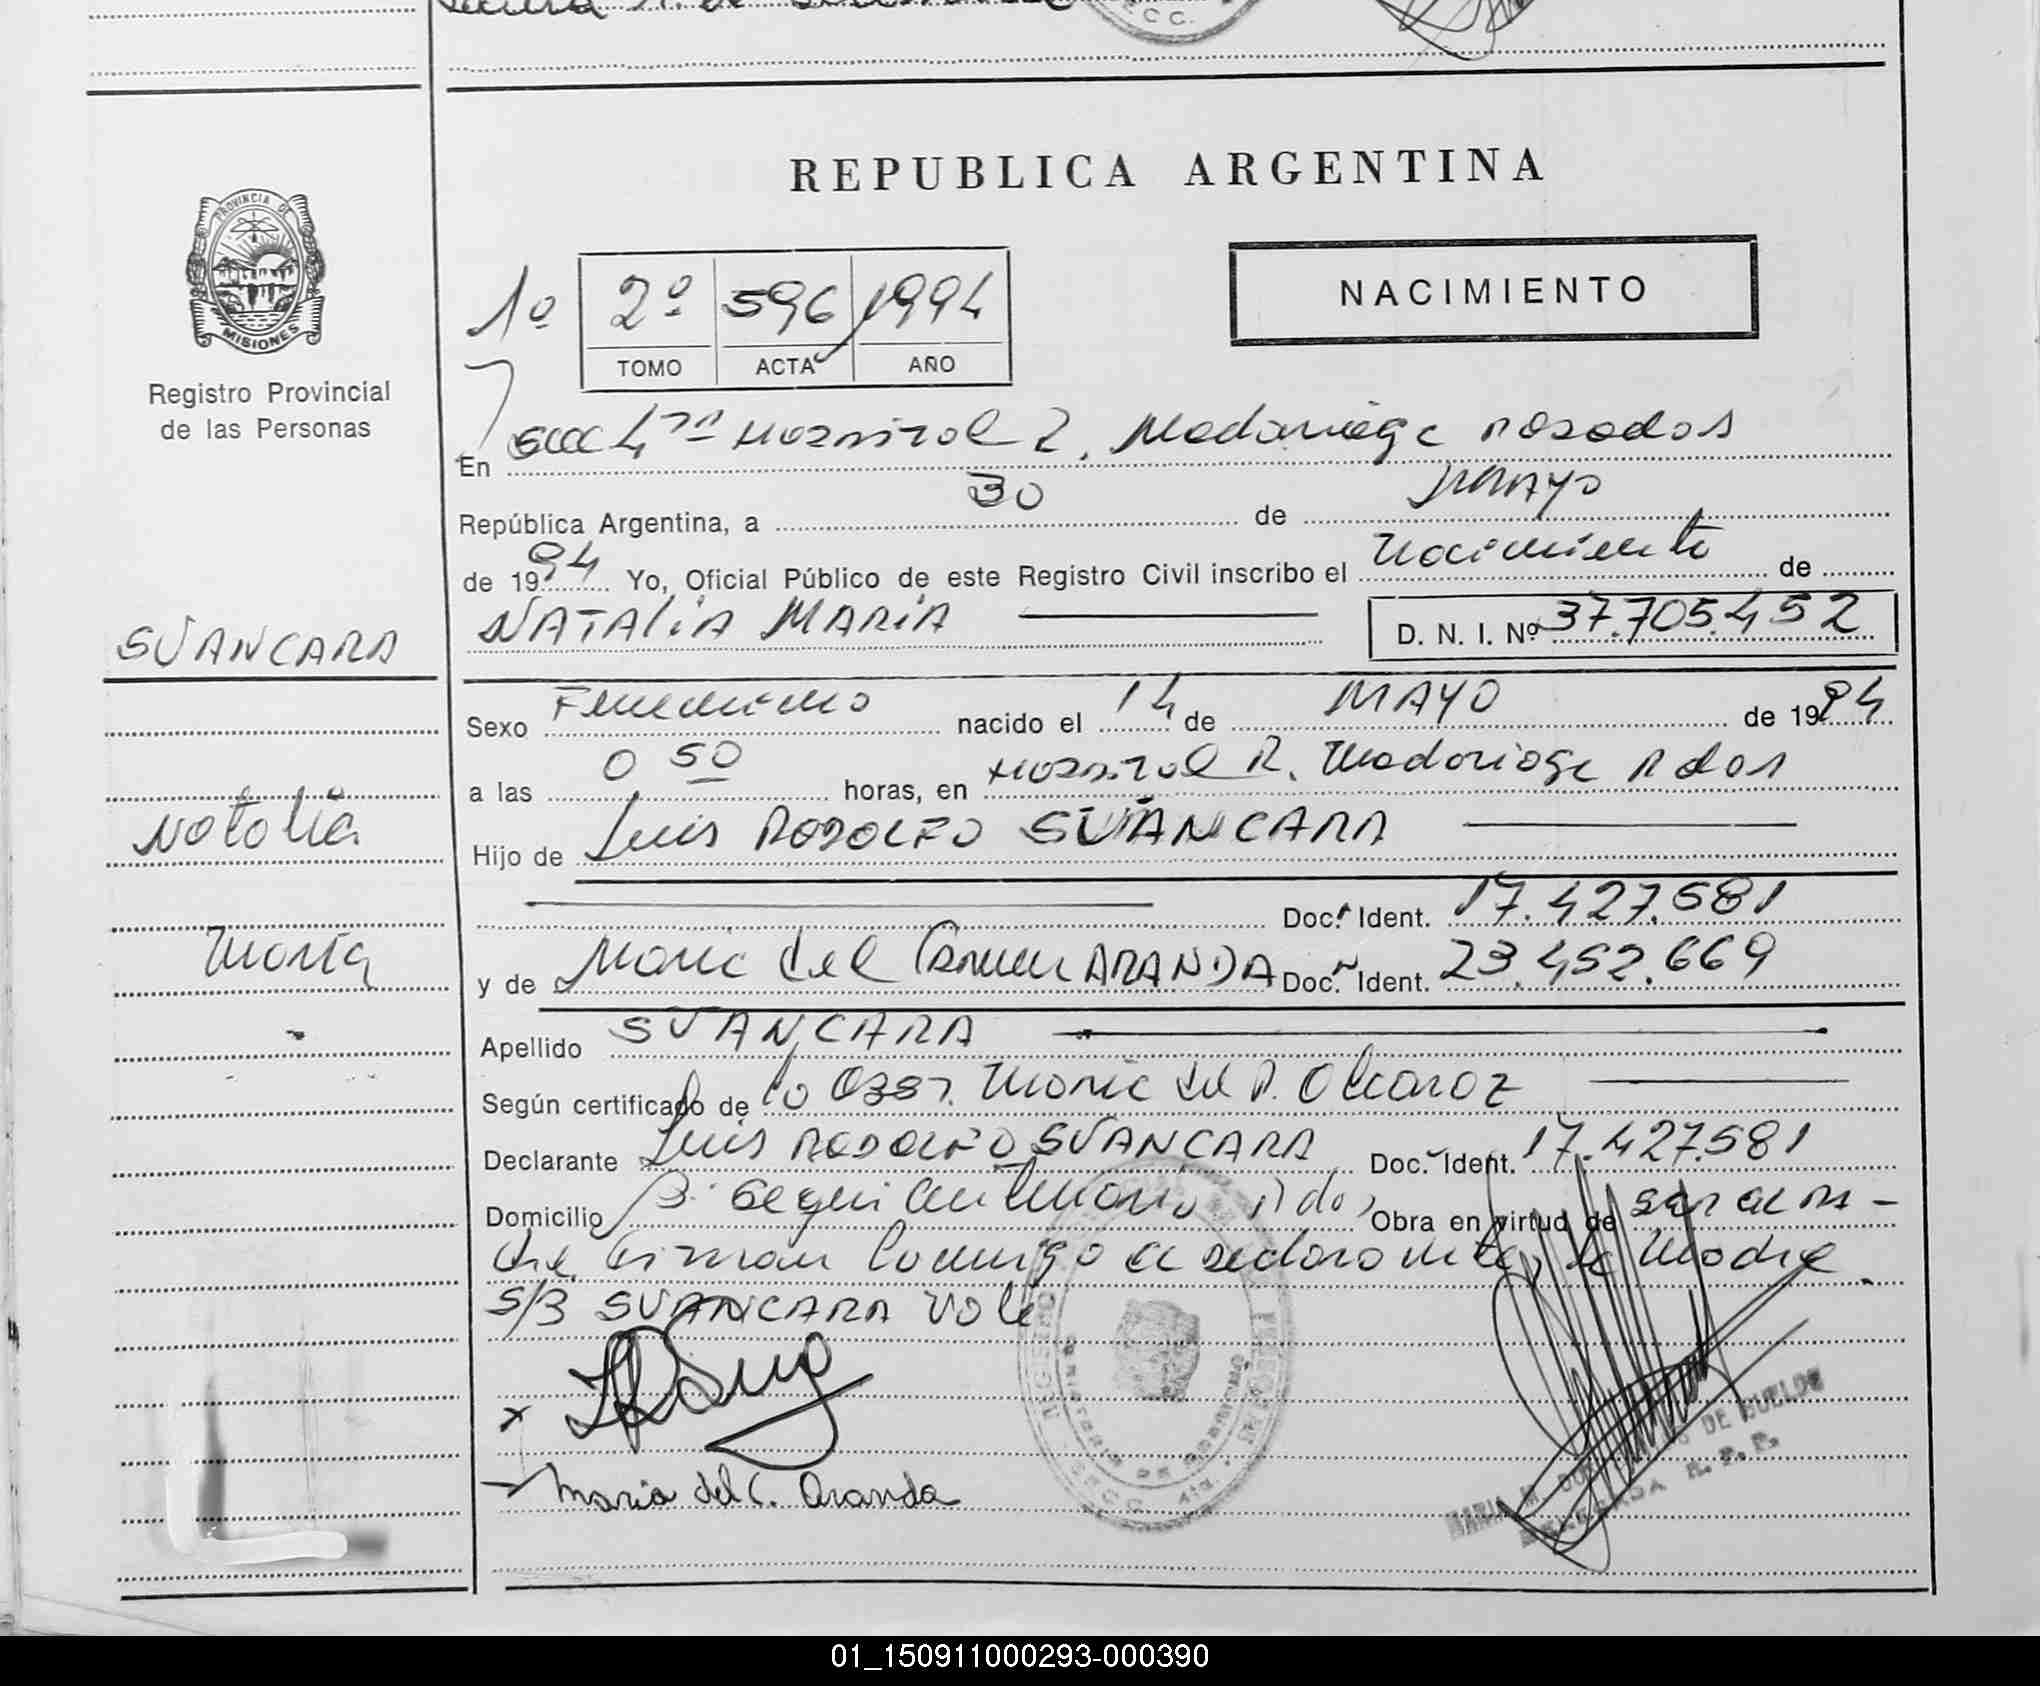 REPUBLICA ARGENTINA
PROVINCIA DE
MISIONES
Registro Provincial
de las Personas
NACIMIENTO
1º 2º 596 1994
TOMO ACTA AÑO
En Hospital R. Madariaga Posadas
República Argentina, a 30 de MAYO
de 1994 Yo, Oficial Público de este Registro Civil inscribo el Nacimiento de
NATALIA MARIA D. N. I. Nº 37.705.452
SVANCARA
Natalia
Maria
Sexo Femenino nacido el 14 de MAYO de 1994
a las 0 50 horas, en Hospital R. Madariaga Pdas
Hijo de Luis RODOLFO SVANCARA
Doc. Ident. 17.427.581
y de Maria del Carmen ARANDA Doc. Ident. 23.452.669
Apellido SVANCARA
Según certificado de la Obst. Maria del P. Alcaraz
Declarante Luis RODOLFO SVANCARA Doc. Ident. 17.427.581
Domicilio Pdas Obra en virtud de
Firman conmigo el declarante, la Madre
S/B SVANCARA Vale
Maria del C. Aranda
MARIA M. DE BUELDE
R. P. P.
01_150911000293-000390